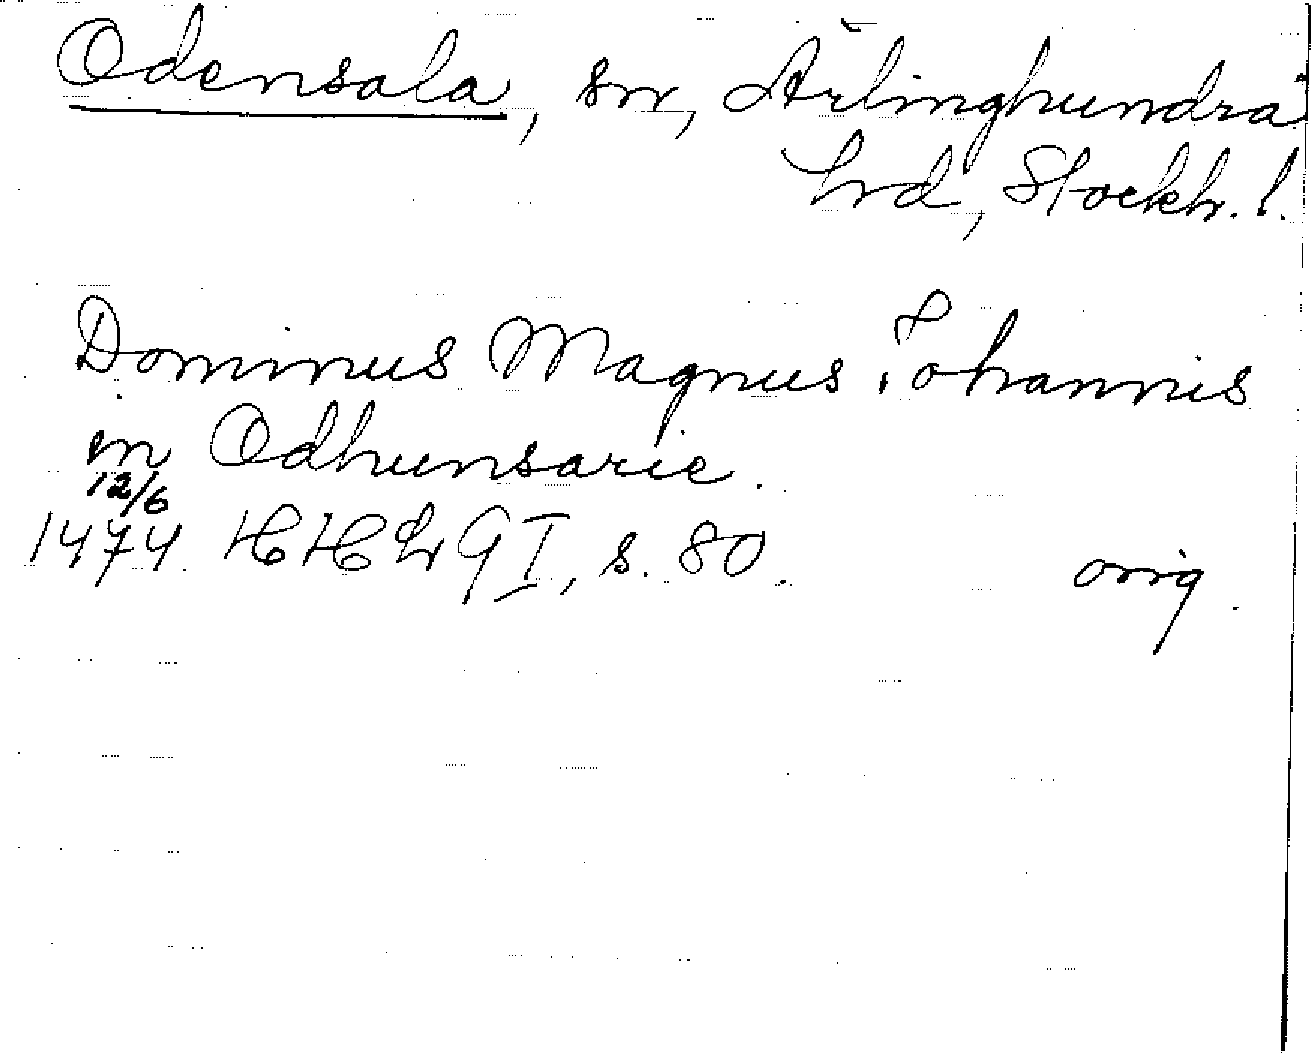 Odensala, sn, Ärlinghundra
hrd, Stockh. l.
Dominus Magnus Johannis
in Odhunsarie.
12/6
1474 HHLG I, s. 80. orig.